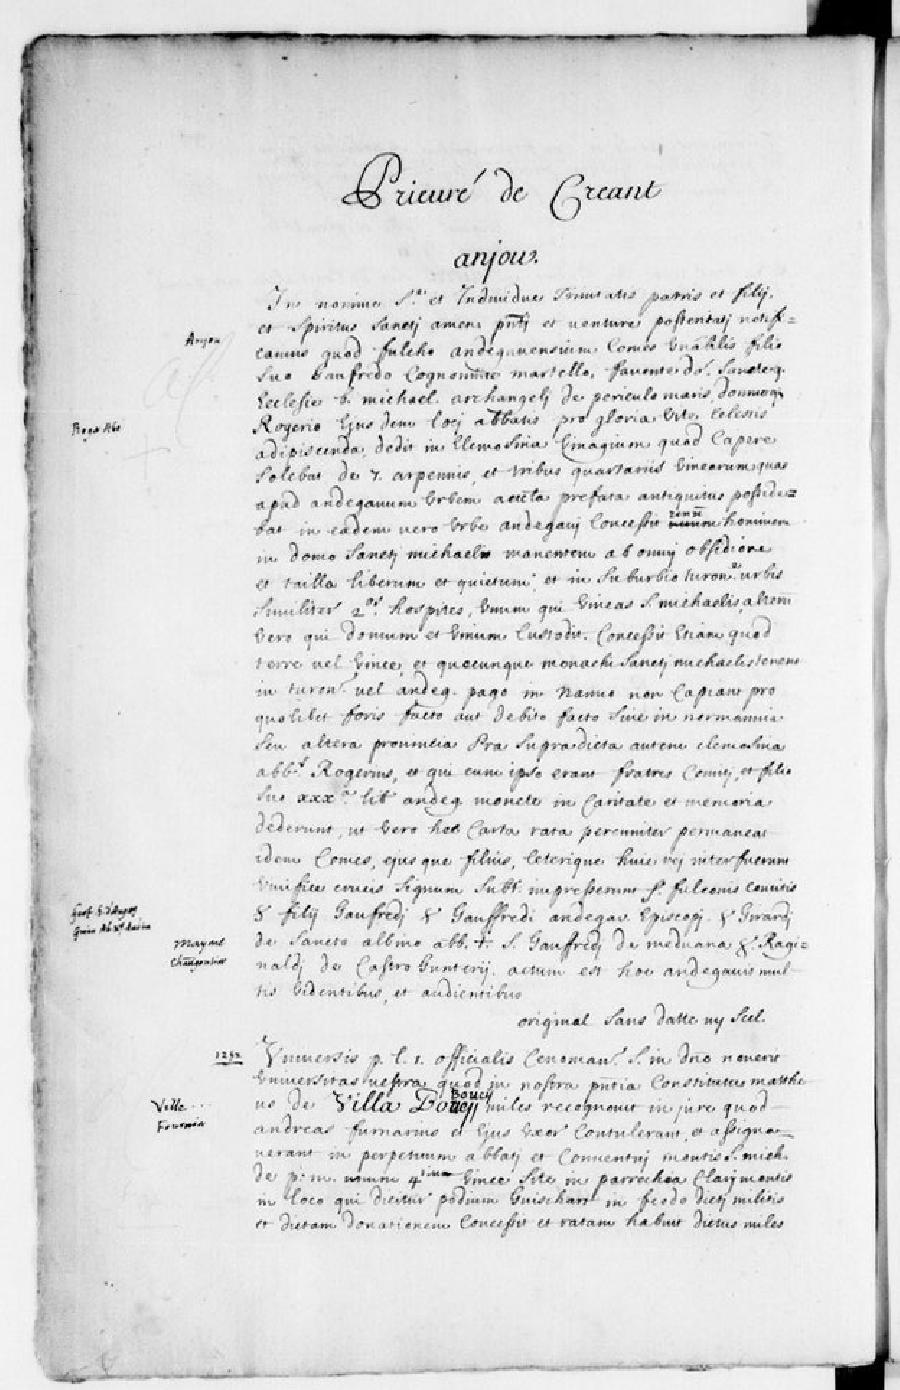 Prieuré de Creant
anjou.
In nomine S.e et Individue Trinitatis patris et filij
et Spiritus Sanctj amen. pntj et venture posteritatj notifi=
Anjou
camus quod fulcho andegavensium Comes Venablis filio
Suo Gaufredo Cognomte martello, favente do. Sancteq.
Ecclesie b. michael. archangelj de periculo maris, domnoq
Roger Abb
Rogerio Ejusdem locj abbatis pro gloria Vite Celestis
adipiscenda, dedit in Elemosina Vinagium quod Capere
Solebat de 7. arpennis, et tribus quartariis Vinearum quas
apud andegavum Urbem accta prefata antiquitus posside=
bat in eadem vero Urbe andegavj Concessit hominem
in domo Sanctj michaelis manentem ab omnj obsidione
et tailla liberum et quietum, et in Suburbio turon. urbis
Similiter 2.os hospites, Unum qui Vineas S. michaelis, alterum
Vero qui domum et Vinum Custodit. Concessit Etiam quod
terre vel Vinee, et quecunque monachi Sanctj michaelis tenent
in turon. vel andeg. pago in Namio non Capiant pro
quolibet foris facto aut debito facto Sive in normannia
Seu altera provincia Pra Supradicta autem elemosina
abb.s Rogerius, et qui cum ipso erant fratres Comitj, et filio
Suo xxx. lib andeg. monete in Caritate et memoria
dederunt, ut Vero hec Carta rata perenniter permaneat
idem Comes, ejusque filius, Ceterique huic rej interfuerunt
Vivifice crucis Signum Subt. impresserunt S. fulconis comitis
S filij Gaufredj S Gauffredi andegav. Episcopj. S Girardj
de Sancto albino abb. S. Gauffredj de meduana S. Ragi=
Mayene
naldj de Castro Gunterij. actum est hoc andegavis mul
tis Videntibus, et audientibus
original Sans datte ny Scel.
Universis p. l. i. officialis Cenoman. S. in dno noverit
Universitas vestra quod in nostra pntia Constitutus matthe
Ville
us de Villa Boucij Boucij miles recognovit in jure quod
andreas furnarius et Ejus Uxor Contulerunt, et assigna
verunt in perpetuum abbatj et Conventuj montis S. mich.
de p. m. unum Vinee Site in parrochia Clarjmontis
in Loco qui dicitur podium Guischart in feodo dictj militis
et dictam donationem Concessit et ratam habuit dictus miles